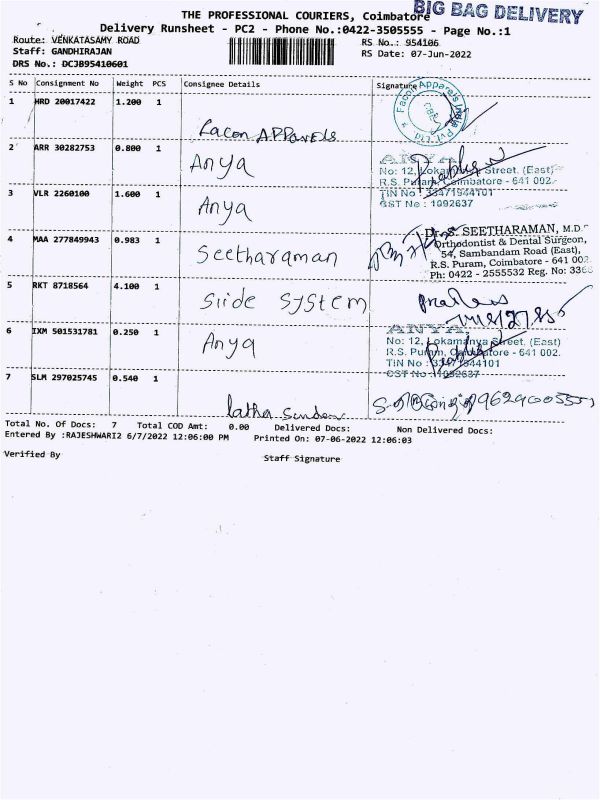 BIG BAG DELIVERY
THE PROFESSIONAL COURIERS, Coimbatore
Delivery Runsheet - PC2 - Phone No.:0422-3505555 - Page No.:1
Route: VENKATASAMY ROAD
RS No.: 954106
Staff: GANDHIRAJAN
RS Date: 07-Jun-2022
DRS No.: DCJB95410601
S No Consignment No Weight PCS Consignee Details Signature
1 HRD 20017422 1.200 1 Facon APPARELS
Facon Apparels India Pvt Ltd
CBE
2 ARR 30282753 0.800 1 Anya
ANYA
No: 12, Lokamanya Street, (East)
R.S. Puram, Coimbatore - 641 002.
TIN No : 33471944101
GST No : 1092637
3 VLR 2260100 1.600 1 Anya
4 MAA 277849943 0.983 1 Seetharaman
Dr. S. SEETHARAMAN, M.D.S
Orthodontist & Dental Surgeon,
54, Sambandam Road (East),
R.S. Puram, Coimbatore - 641 002
Ph: 0422 - 2555532 Reg. No: 3368
5 RKT 8718564 4.100 1 Slide System
6 IXM 501531781 0.250 1 Anya
ANYA
No: 12, Lokamanya Street, (East)
R.S. Puram, Coimbatore - 641 002.
TIN No : 33471944101
CST No : 1092637
7 SLM 297025745 0.540 1 latha
9629005551
Total No. Of Docs: 7 Total COD Amt: 0.00 Delivered Docs: Non Delivered Docs:
Entered By :RAJESHWARI2 6/7/2022 12:06:00 PM Printed On: 07-06-2022 12:06:03
Verified By Staff Signature